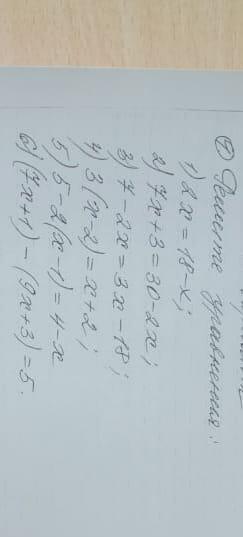 ⑦ Решите уравнения:
1) 2x = 18-x;
2) 7x+3=30-2x;
3) 7-2x=3x-18;
4) 3(x-2)=x+2;
5) 5-2(x-1)=4-x
6) (7x+1)-(9x+3)=5.